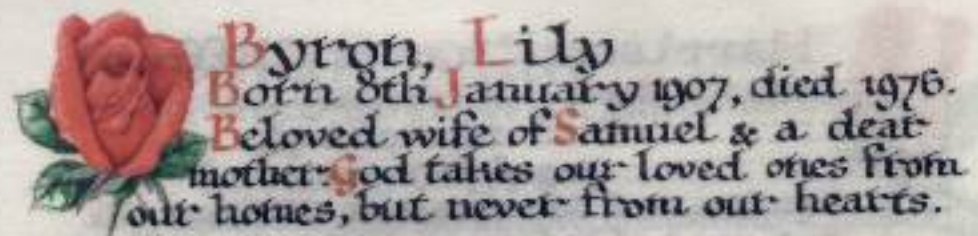 Byron, Lily
Born 8th January 1907, died 1976.
Beloved wife of Samuel & a dear
mother. God takes our loved ones from
our homes, but never from our hearts.